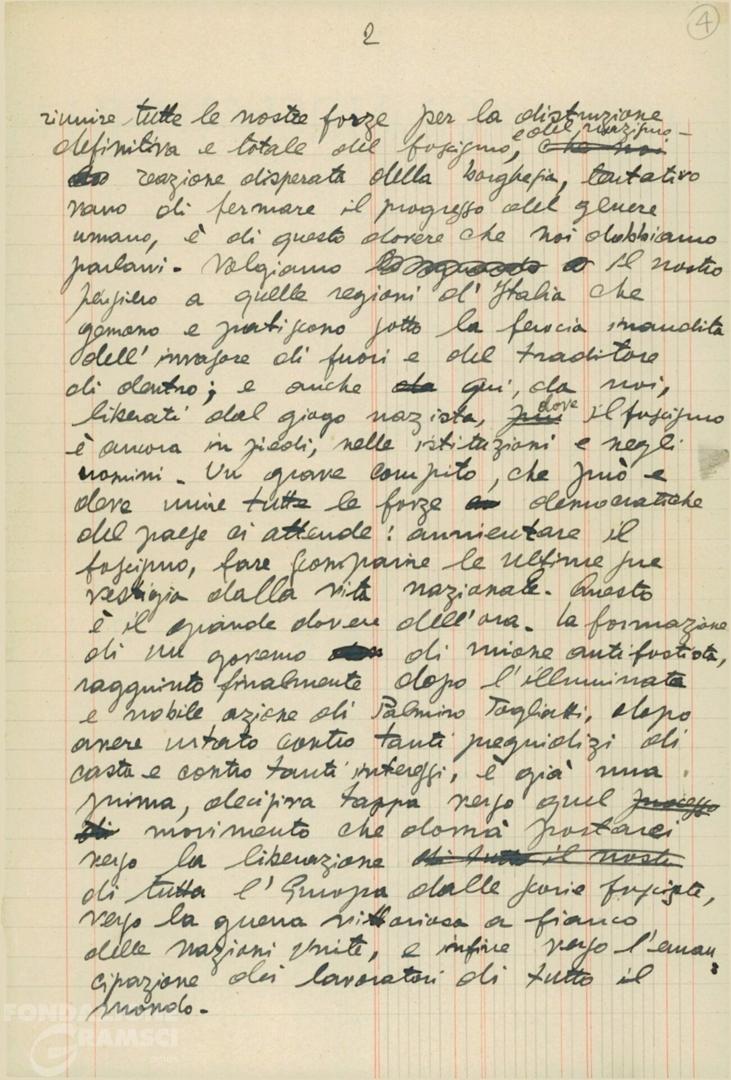 2
4
riunire tutte le nostre forze per la distruzione
e del nazismo -
definitiva e totale del fascismo, che noi
reazione disperata della borghesia, tentativo
vano di fermare il progresso del genere
umano, è di questo dovere che noi dobbiamo
parlarvi. Volgiamo il nostro
pensiero a quelle regioni d'Italia che
gemono e patiscono sotto la ferocia inaudita
dell'invasore di fuori e del traditore
di dentro; e anche da qui, da noi,
liberati dal giogo nazista, più dove il fascismo
è ancora in piedi, nelle istituzioni e negli
uomini. Un grave compito, che può e
deve unire tutte le forze democratiche
del paese ci attende: annientare il
fascismo, fare scomparire le ultime sue
vestigia dalla vita nazionale. Questo
è il grande dovere dell'ora. La formazione
di un governo di unione antifascista,
raggiunto finalmente dopo l'illuminata
e nobile azione di Palmiro Togliatti, dopo
avere urtato contro tanti pregiudizi di
casta e contro tanti interessi, è già una
prima, decisiva tappa verso quel processo
di movimento che dovrà portarci
verso la liberazione di tutto il nostro
di tutta l'Europa dalle scorie fasciste,
verso la guerra vittoriosa a fianco
delle Nazioni Unite, e infine verso l'eman
cipazione dei lavoratori di tutto il
mondo.
FONDAZIONE
GRAMSCI